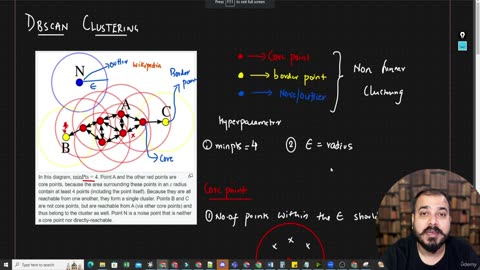 Press F11 to exit full screen
DBSCAN Clustering
N
Outlier
Wikipedia
ε
Border point
A
C
B
x
Core
In this diagram, minPts = 4. Point A and the other red points are
core points, because the area surrounding these points in an ε radius
contain at least 4 points (including the point itself). Because they are all
reachable from one another, they form a single cluster. Points B and C
are not core points, but are reachable from A (via other core points) and
thus belong to the cluster as well. Point N is a noise point that is neither
a core point nor directly-reachable.
Core point
border point
Noise/outlier
Clustering
Hyperparameter
① minpts = 4
② ε = radius
Core point
① No. of point within the ε
x x x
Udemy